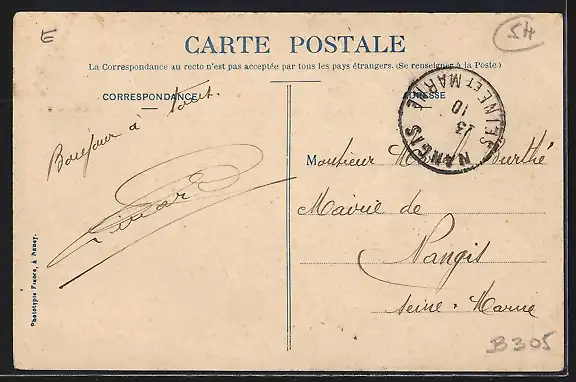 E
54
CARTE POSTALE
La Correspondance au recto n'est pas acceptée par tous les pays étrangers. (Se renseigner à la Poste.)
CORRESPONDANCE
ADRESSE
Bonjour à tout.
NANGIS
SEINE-ET-MARNE
10
Monsieur
Mairie de
Nangis
Seine & Marne
Phototypie Fisnce, à Nancy.
B305